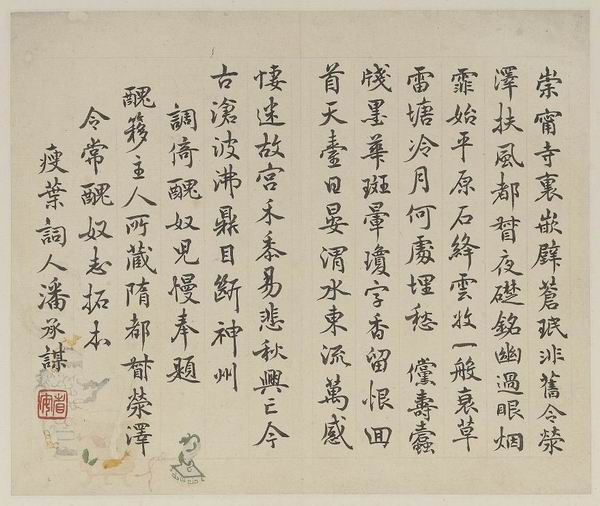 崇甯寺裏嵌壁蒼珉非舊令滎
澤扶風都督夜礎銘幽過眼烟
霏始平原石絳雲收一般衰草
雷塘冷月何處埋愁　儻壽蠹
牋墨華斑暈瓊字香留恨回
首天臺日晏渭水東流萬感
悽迷故宮禾黍易悲秋興亡今
古滄波沸鼎目斷神州
調倚醜奴兒慢奉題
醜簃主人所藏隋都督滎澤
令常醜奴志拓本
瘦葉詞人潘承謀
省安